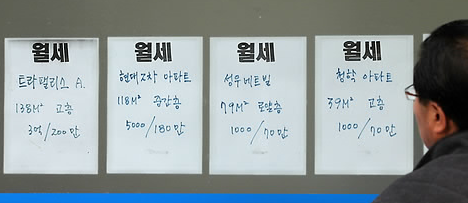 월세
트라팰리스 A.
138M² 고층
3억/200만
월세
현대2차 아파트
118M² 중간층
5000/180만
월세
성우네트빌
79M² 로얄층
1000/70만
월세
청학 아파트
39M² 고층
1000/70만